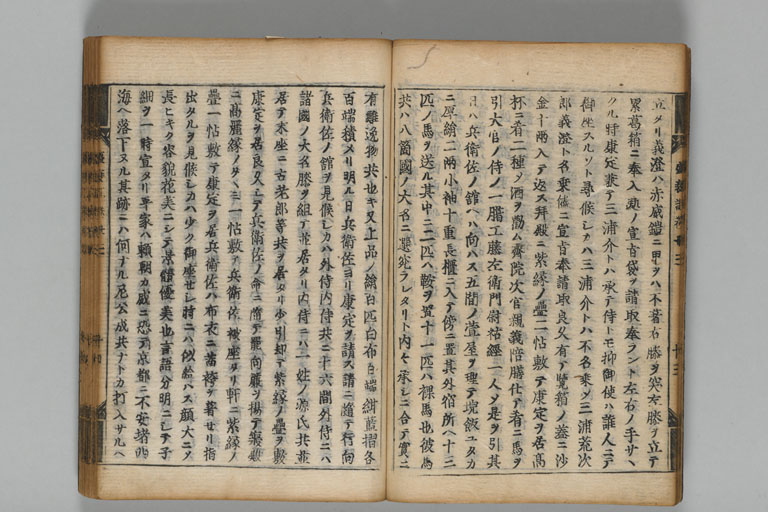 立タリ義澄ハ赤威鎧ニ甲ヲハ不著右ノ膝ヲ突左ノ膝ヲ立テ
累葛箱ニ奉入進ノ宣旨袋ヲ請取奉ラント左右ノ手サヽ
ケル時康定兼テ三浦介トハ承テ侍トモ抑御使ハ誰人ニテ
御座スルソト尋候シカハ三浦介トハ不名乗メ三浦荒次
郎義澄ト名乗候ニ宣旨奉請取良久有テ覧箱ノ蓋ニ沙
金十両入テ返ス拝殿ニ紫縁ノ疊二帖敷テ康定ヲ居高
杯ニ肴二種メ酒ヲ勸ム齋院次官親義陪膳仕テ肴ニ馬ヲ
引大宮ノ侍ノ一臈工藤左衛門尉祐經一人メ是ヲ引其
日ハ兵衛佐ノ館ヘハ向ハス五間ノ萱屋ヲ理テ埦飯ユタカ
ニ厚絹二兩小袖十重長櫃ニ入テ傍ニ置其外宿所ヘ十三
匹ノ馬ヲ送ル其中ニ二匹ハ鞍ヲ置十一匹ハ裸馬也彼馬
共ハ八箇國ノ大名ニ選宛ラレタリト内々承シニ合テ實ニ
有難逸物共也キ又上品ノ絹百匹白布百端紺藍摺各
百端積メリ明ル日兵衛佐ヨリ康定ヲ請ス請ニ隨テ行向
兵衛佐ノ館ヲ見候シカハ外侍内侍共ニ十六間外侍ニハ
諸國ノ大名膝ヲ組テ並居タリ内侍ニハ一姓ノ源氏共並
居テ末座ニ古老郎等共ヲ居タリ少引却テ紫縁ノ疊ヲ敷
康定ヲ居良久シテ兵衛佐ノ命ニ隨テ康定向簾ヲ揚テ寢殿
ニ高麗縁ノタヽミ一帖敷テ兵衛佐被座タリ軒ニ紫縁ノ
疊一帖敷テ康定ヲ居兵衛佐ハ布衣ニ葛袴ヲ著セリ指
出タルヲ見候シカハ少ク御座セシ時ニハ似給ハス顔大ニメ
長ヒキク容貌花美ニシテ景體優美也言語分明ニシテ子
細ヲ一時宣タリ平家ハ頼朝カ威ニ恐テ京都ニ不安堵西
海ヘ落下ヌル其跡ニハ何ナル尼公成共ナトカ打入サルヘ